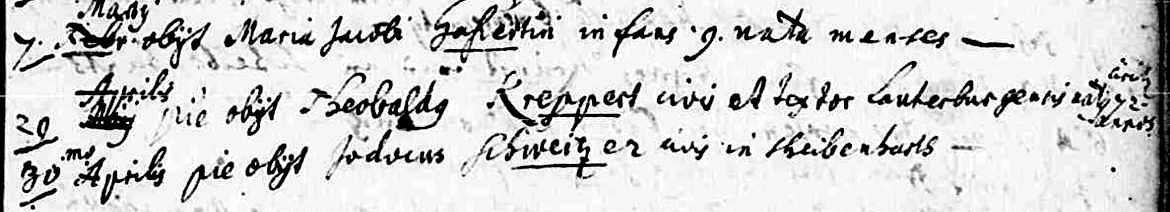 Martij
7. Febr. obijt Maria Jacobi in fans 9. nata menses —
Aprilis circiter
29 pie obijt Theobaldus Kreppert civis et textor Lauterburgensis nat 72 annos
30 mo Aprilis pie obijt Jodocus Schweitzer civis in Scheibenharts —